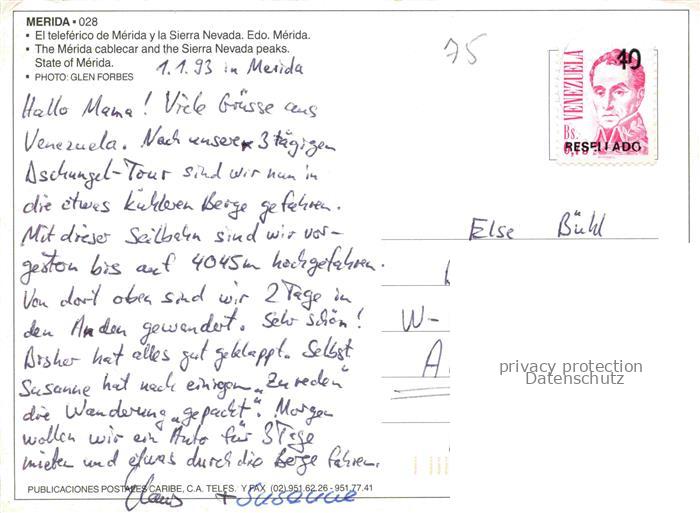 MERIDA • 028
• El teleférico de Mérida y la Sierra Nevada. Edo. Mérida.
• The Mérida cablecar and the Sierra Nevada peaks.
State of Mérida.
• PHOTO: GLEN FORBES
1.1.93 in Merida
75
Hallo Mama! Viele Grüsse aus
Venezuela. Nach unserer 3 tägigen
Dschungel-Tour sind wir nun in
die etwas kühleren Berge gefahren.
Mit dieser Seilbahn sind wir vor-
gestern bis auf 4045m hochgefahren.
Von dort oben sind wir 2 Tage in
den Anden gewandert. Sehr schön!
Bisher hat alles gut geklappt. Selbst
Susanne hat nach einigem „Zureden"
die Wanderung „gepackt". Morgen
wollen wir ein Auto für 3 Tage
mieten und etwas durch die Berge fahren.
Klaus + Susanne
PUBLICACIONES POSTALES CARIBE, C.A. TELFS. Y FAX (02) 951.62.26 - 951.77.41
VENEZUELA
10
Bs.
RESELLADO
Else Bühl
W-
A
privacy protection
Datenschutz